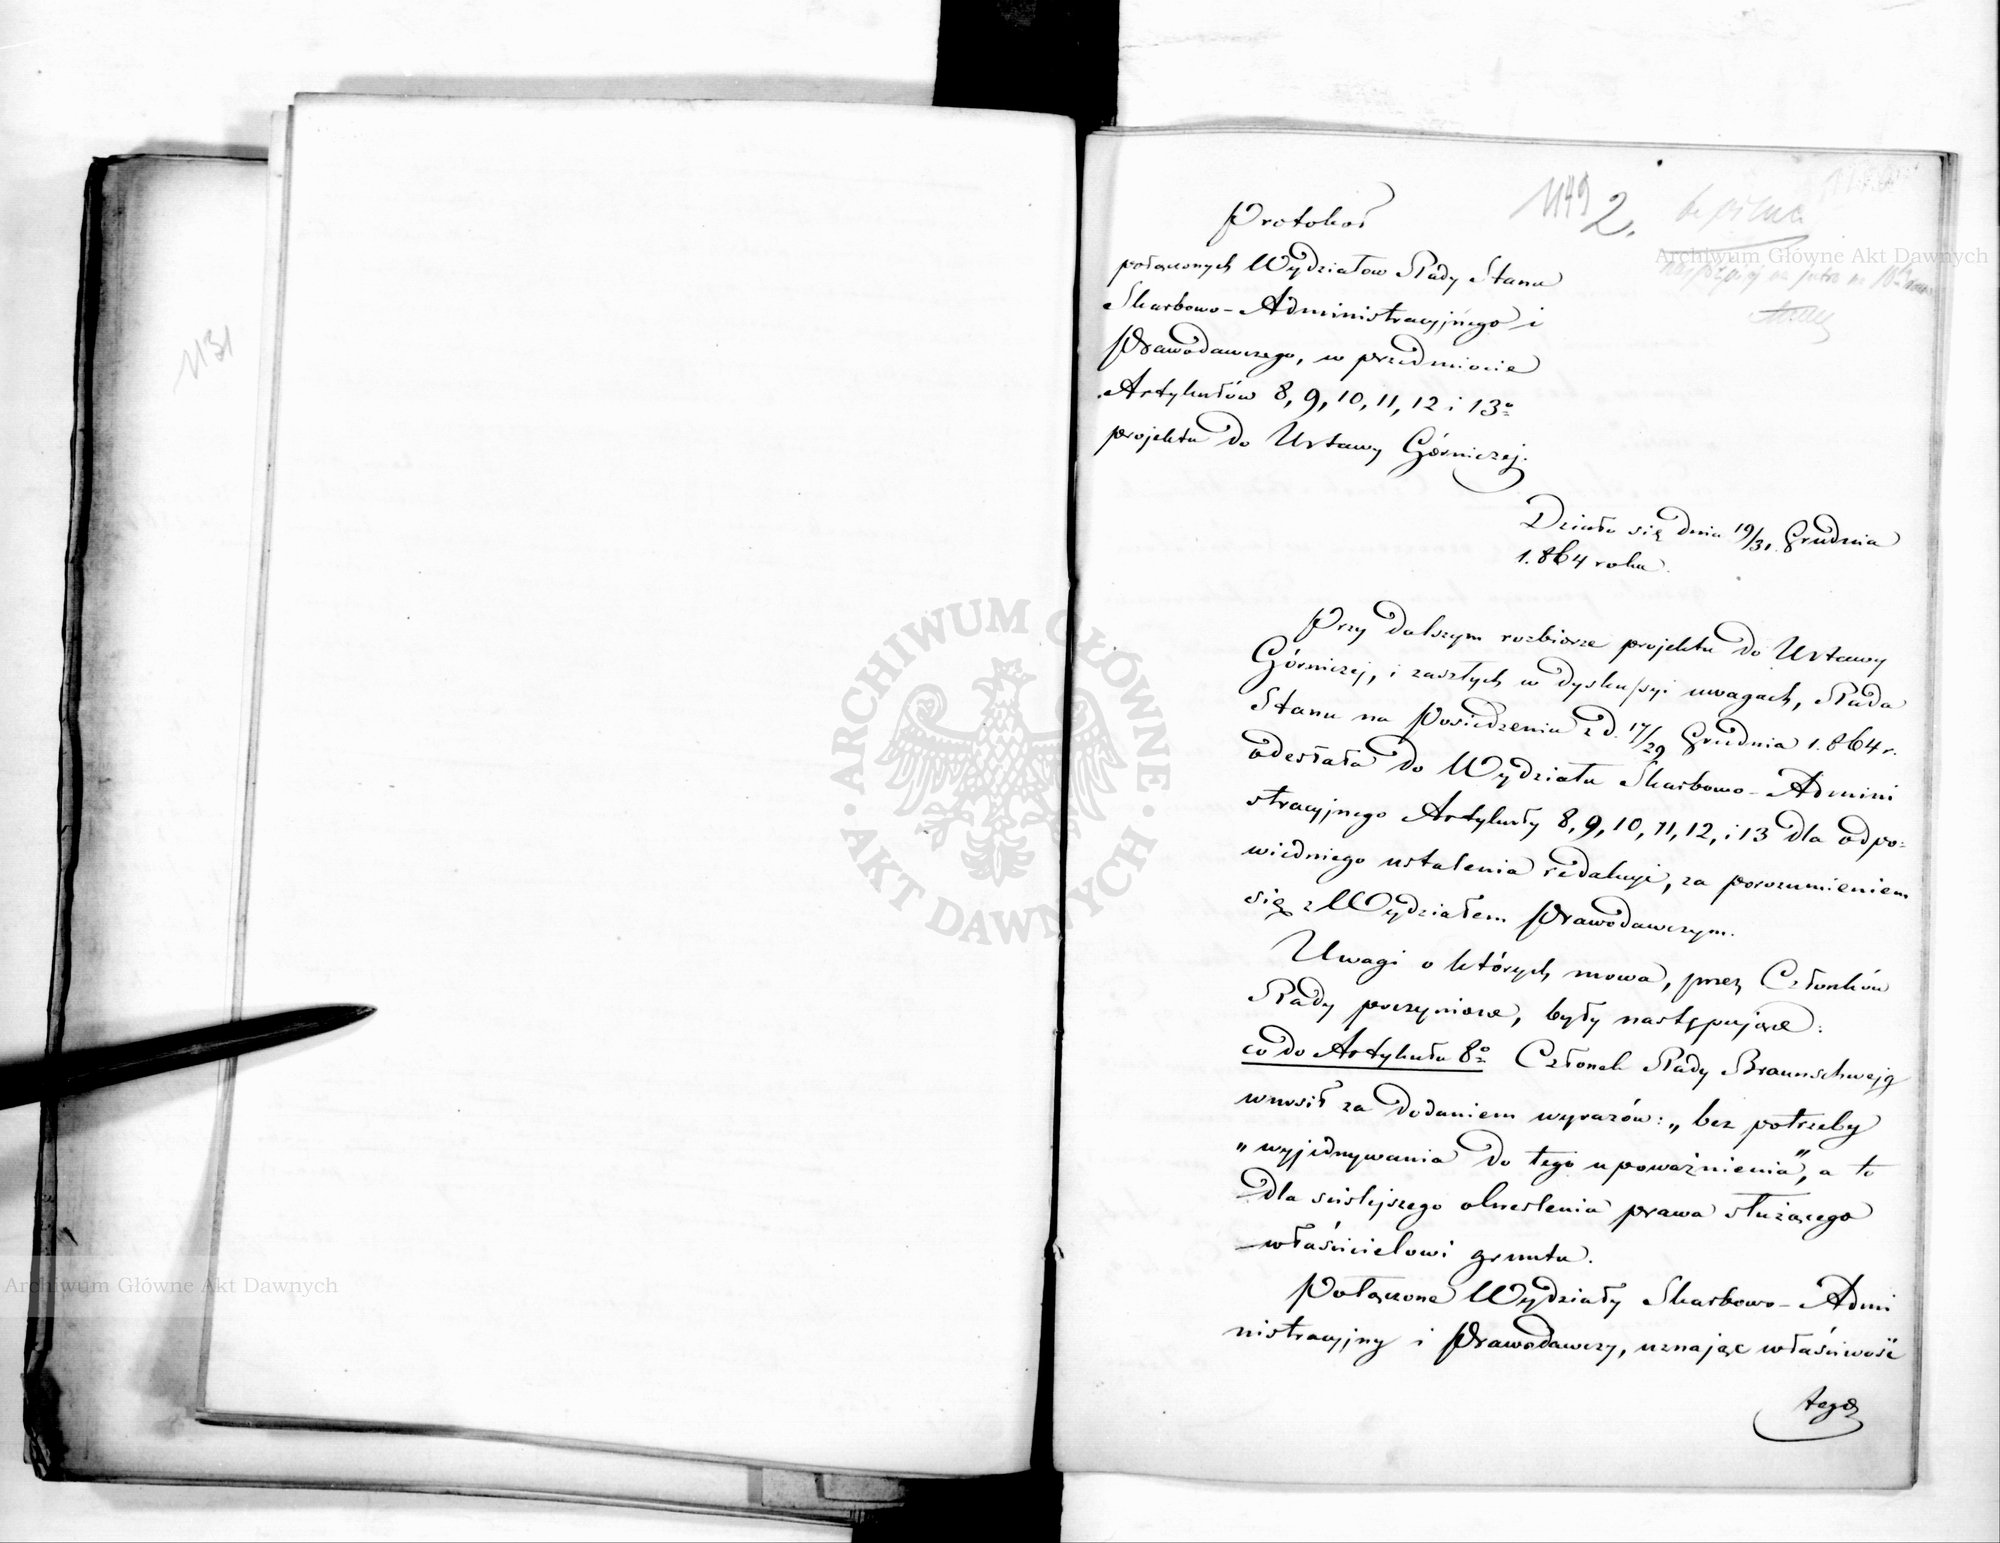 1131
1149 2.
Protokół
połączonych Wydziałow Rady Stanu
Skarbowo-Administracyjnego i
Prawodawczego, w przedmiocie
Artykułów 8, 9, 10, 11, 12 i 13º
projektu do Ustawy Górniczej.
Działo się dnia 19/31. Grudnia
1.864 roku.
Przy dalszym rozbiorze projektu do Ustawy
Górniczej, i zaszłych w dyskussyi uwagach, Rada
Stanu na Posiedzeniu z d. 17/29 Grudnia 1.864 r.
odesłała do Wydziału Skarbowo-Admini
stracyjnego Artykuły 8, 9, 10, 11, 12, i 13 dla odpo=
wiedniego ustalenia redakcyi, za porozumieniem
się z Wydziałem Prawodawczym.
Uwagi o których mowa, przez Członków
Rady poczynione, były następujące:
co do Artykułu 8º Członek Rady Braunschwejg
wnosił za dodaniem wyrazów: „bez potrzeby
„wyjednywania do tego upoważnienia", a to
dla ściślejszego określenia prawa służącego
właścicielowi gruntu.
Połączone Wydziały Skarbowo-Admi
nistracyjny i Prawodawczy, uznając właściwość
tego
Archiwum Główne Akt Dawnych
Archiwum Główne Akt Dawnych
ARCHIWUM GŁÓWNE
AKT DAWNYCH